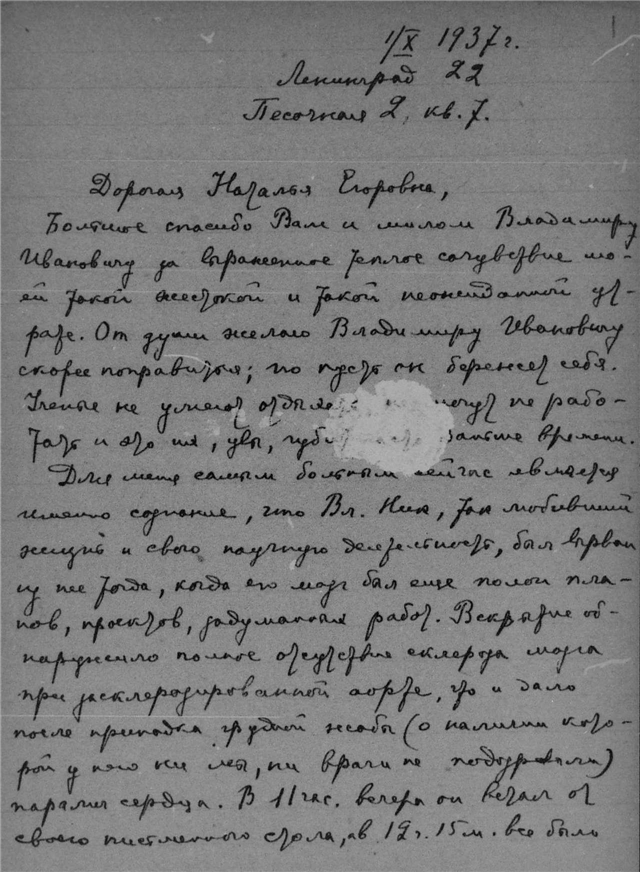 1/X 1937 г.
Ленинград 22
Песочная 2, кв. 7.
Дорогая Наталья Егоровна,
Большое спасибо Вам и милом Владимиру
Ивановичу за выраженное теплое сочувствие мо-
ей такой жестокой и такой неожиданной ут-
рате. От души желаю Владимиру Ивановичу
скорее поправиться; но пусть он бережет себя.
Ученые не умеют отдыхать, не могут не рабо-
тать и это их, увы, губит раньше времени.
Для меня самым больным сейчас является
именно сознание, что Вл. Ник, так любивший
жизнь и свою научную деятельность, был вырван
из нее тогда, когда его мозг был еще полон пла-
нов, проектов, задуманных работ. Вскрытие об-
наружило полное отсутствие склероза мозга
при засклерозированной аорте, что и дало
после припадка грудной жабы (о наличии кото-
рой у него ни мы, ни врачи не подозревали)
паралич сердца. В 11 час. вечера он встал от
своего письменного стола, а в 12 г. 15 м. все было